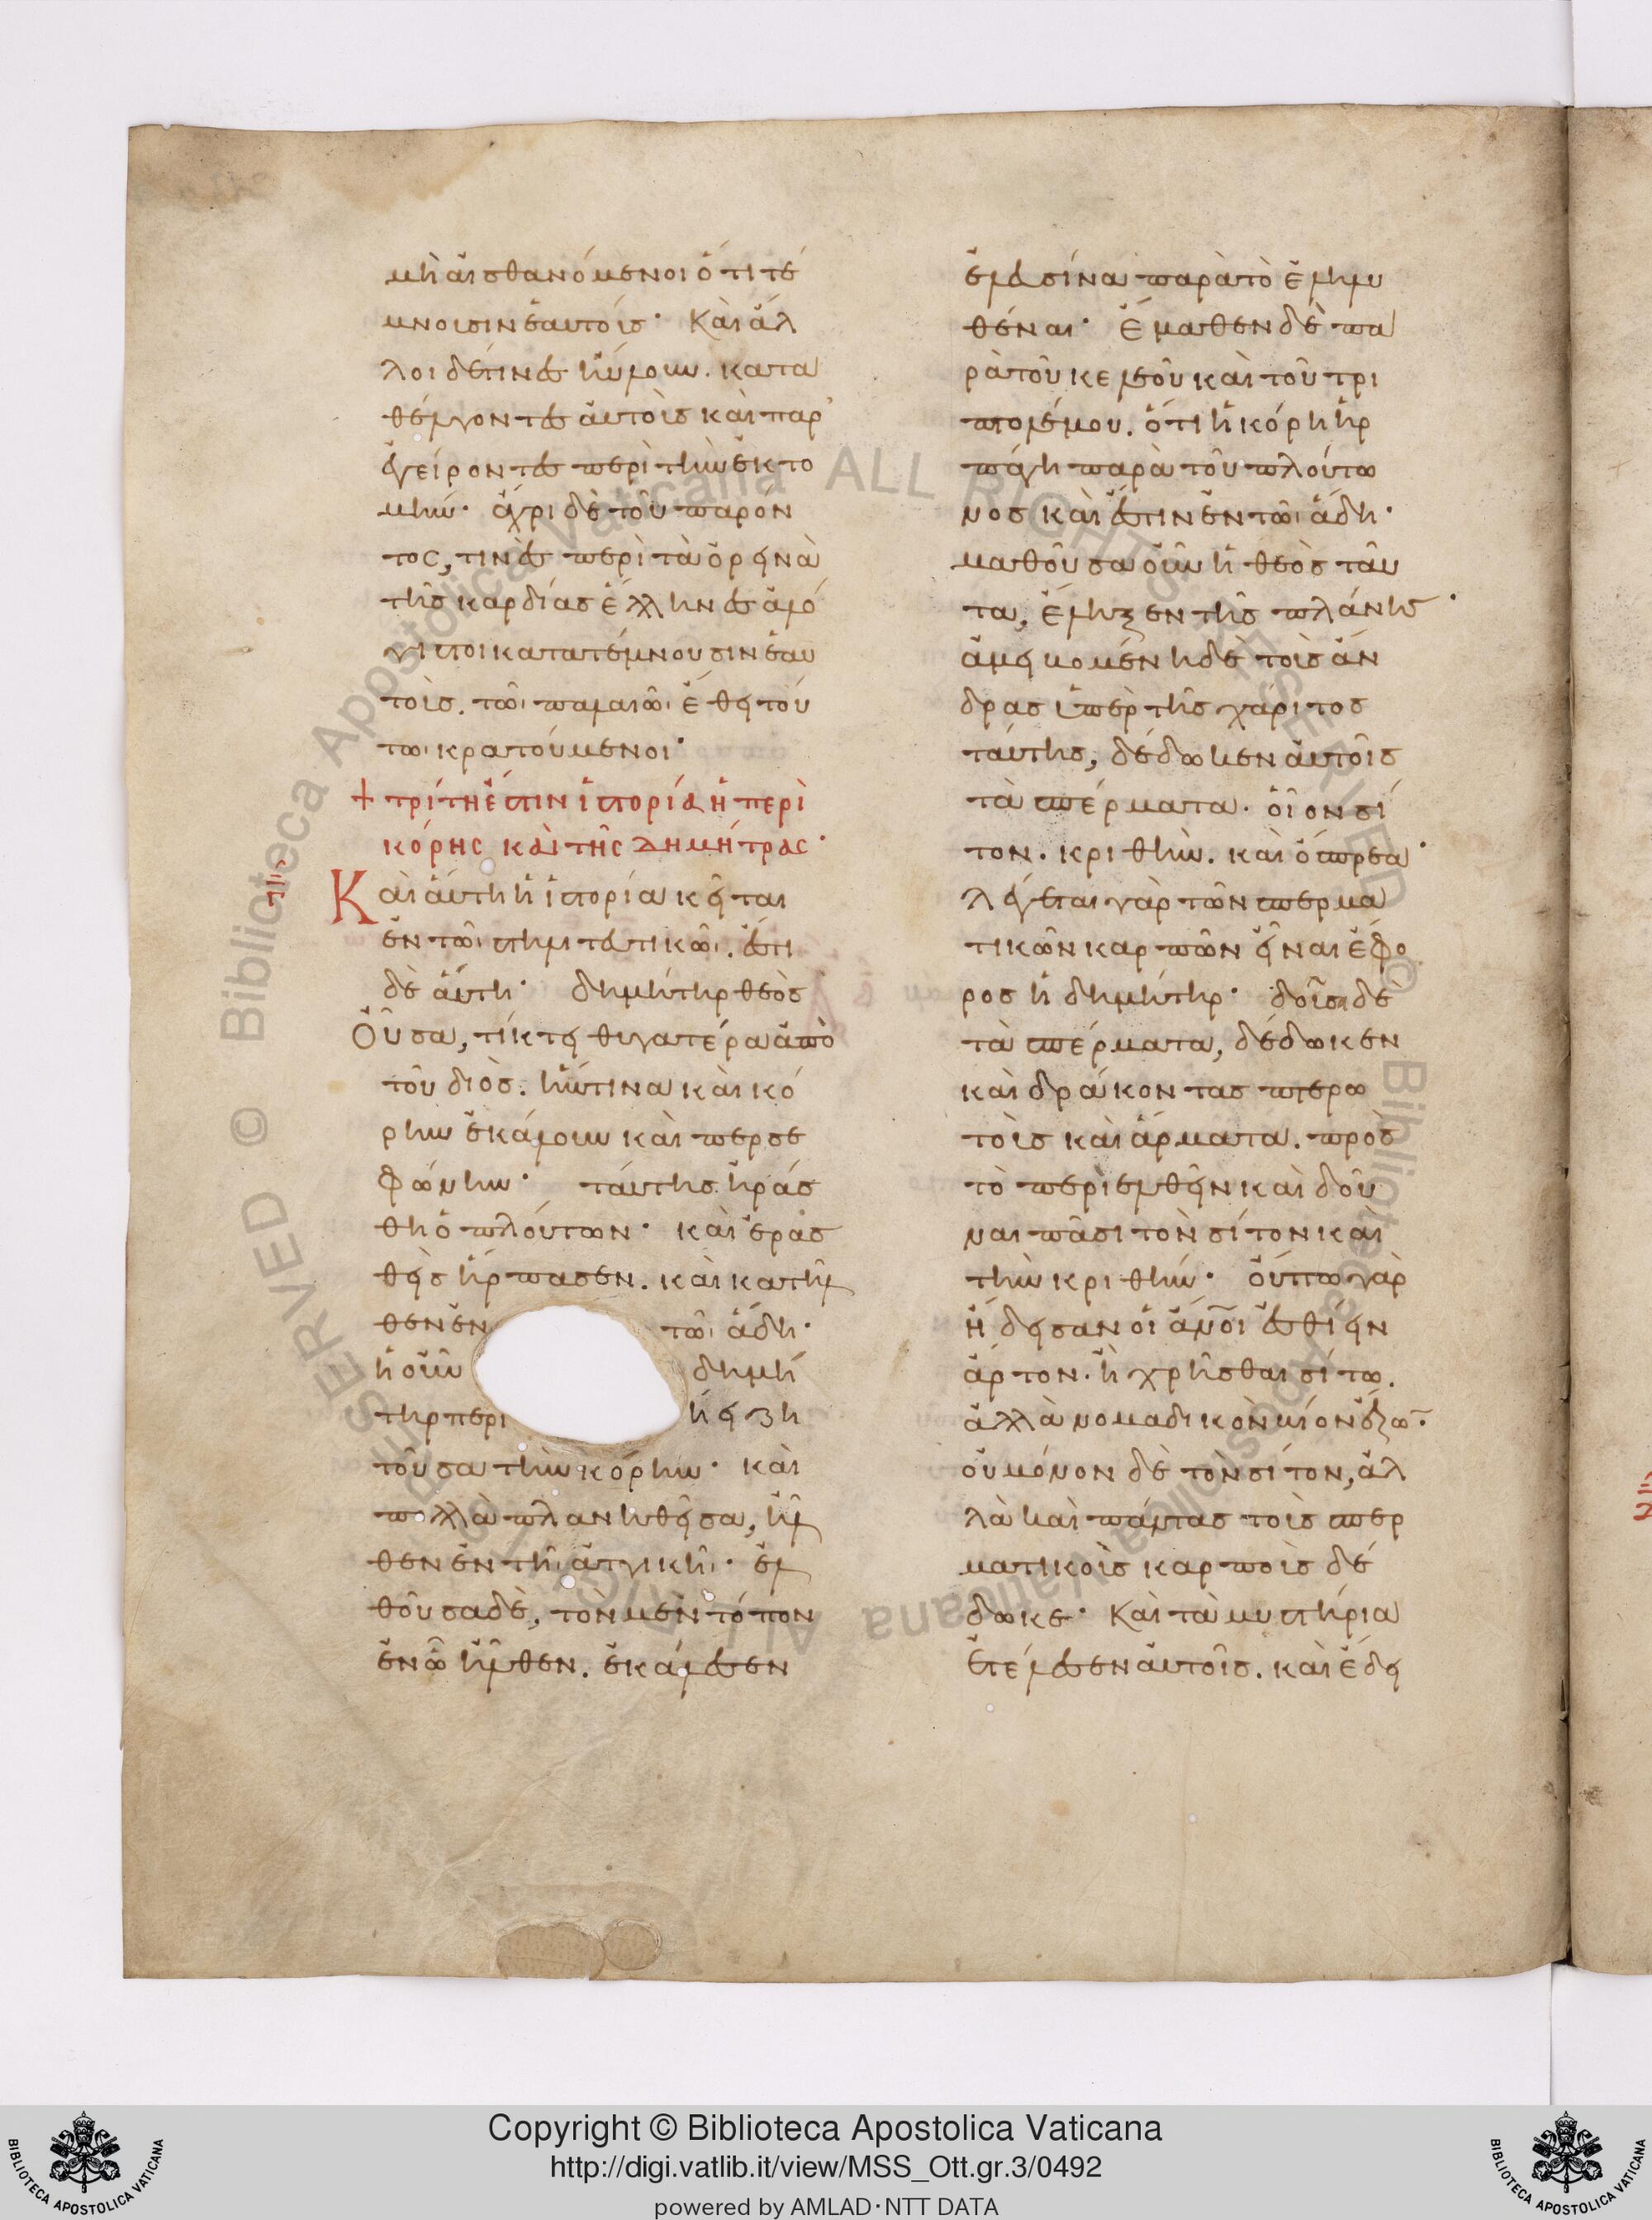 μὴ αἰσθανόμενοι ὅτι τέ
μνοισιν ἑαυτοίσ· Καὶ ἄλ
λοι δέτινες ηὔλουν. κατα
θέλγοντες αὐτοὶσ καὶ παρ'
εγείροντες περὶ τὴν ἐκτο
μήν· ἄχρι δὲ τοῦ παρόν
τος, τινὲς περὶ τὰ ὄρεινὰ
τῆσ καρδίασ ἕλληνες ἀλό
γιστοι κατατέμνουσιν ἑαυ
τοὶσ. τῶι παλαιῶι ἔθει τού
τωι κρατούμενοι·
+ τρίτη ἐστιν ἱστορία ἡ περὶ
κόρης καὶ τῆς Δημήτρας·
Καὶ αὕτη ἡ ἱστορία κεῖται
ἐν τῶι στηλιτευτικῶι. ἔστι
δὲ αὕτη· δημήτηρ θεὸσ
Οὖσα, τίκτει θυγατέρα ἀπὸ
τοῦ διὸσ. ἥντινα καὶ κό
ρην ἐκάλουν καὶ περσε
φώνην· ταύτησ ἠράσ
θη ὁ πλούτων· καὶ ἐρασ
θεὶσ ἥρπασεν. καὶ κατῆλ
θεν ἐν τῶι ἅδηι·
ἡ οὖν δημή
τηρ περι ήει ζη
τοῦσα τὴν κόρην· καὶ
πολλὰ πλανηθεῖσα, ἦλ
θεν ἐν τῆι ἀττικῆι· ἐλ
θοῦσα δὲ, τὸν μὲν τόπον
ἐν ὧ ἦλθεν. ἐκάλεσεν
ἐλευσίνα παρὰ τὸ ἐλήλυ
θέναι· Ἔμαθεν δὲ πα
ρὰ τοῦ κελεοῦ καὶ τοῦ τρι
πτολέμου. ὅτι ἡ κόρη ἡρ
πάγη παρὰ τοῦ πλούτω
νοσ καὶ ἔστιν ἐν τῶι ἅδηι·
μαθοῦσα οὖν ἡ θεὸσ ταῦ
τα, ἔληξεν τῆσ πλάνησ·
ἀμειβομένη δὲ τοὶσ ἀν
δρασι ὑπὲρ τῆσ χάριτοσ
ταύτησ, δέδωκεν αὐτοῖσ
τὰ σπέρματα. οἷον σί
τον. κριθὴν. καὶ ὄσπρεα·
λέγεται γὰρ τῶν σπερμα
τικῶν καρπῶν εἶναι ἔφο
ροσ ἡ δημήτηρ· δοῖσα δὲ
τὰ σπέρματα, δέδωκεν
καὶ δράκοντασ πτερω
τοὶσ καὶ ἅρματα. πρὸσ
τὸ περιελθεῖν καὶ δοῦ
ναι πᾶσι τὸν σίτον και
τὴν κριθήν· οὔπω γὰρ
ἤδεισαν οἱ ἄν̅οι ἐσθίειν
ἄρτον. ἢ χρῆσθαι σίτω.
ἀλλὰ νομαδικὸν βίον ἔζω̅·
οὐ μόνον δὲ τὸν σίτον, ἀλ
λὰ καὶ πάντασ τοὶσ σπερ
ματικοὶσ καρποὶσ δέ
δωκε· Καὶ τὰ μυστήρια
ἐτέλεσεν αὐτοῖσ. καὶ ἔδει
Copyright © Biblioteca Apostolica Vaticana
http://digi.vatlib.it/view/MSS_Ott.gr.3/0492
powered by AMLAD·NTT DATA